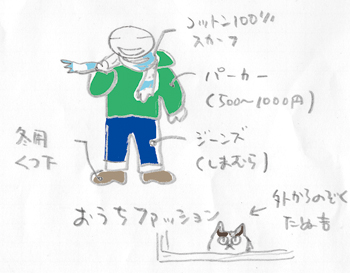 コットン100%
スカーフ
パーカー
(500〜1000円)
冬用
くつ下
ジーンズ
(しまむら)
おうちファッション
外からのぞく
たぬ吉